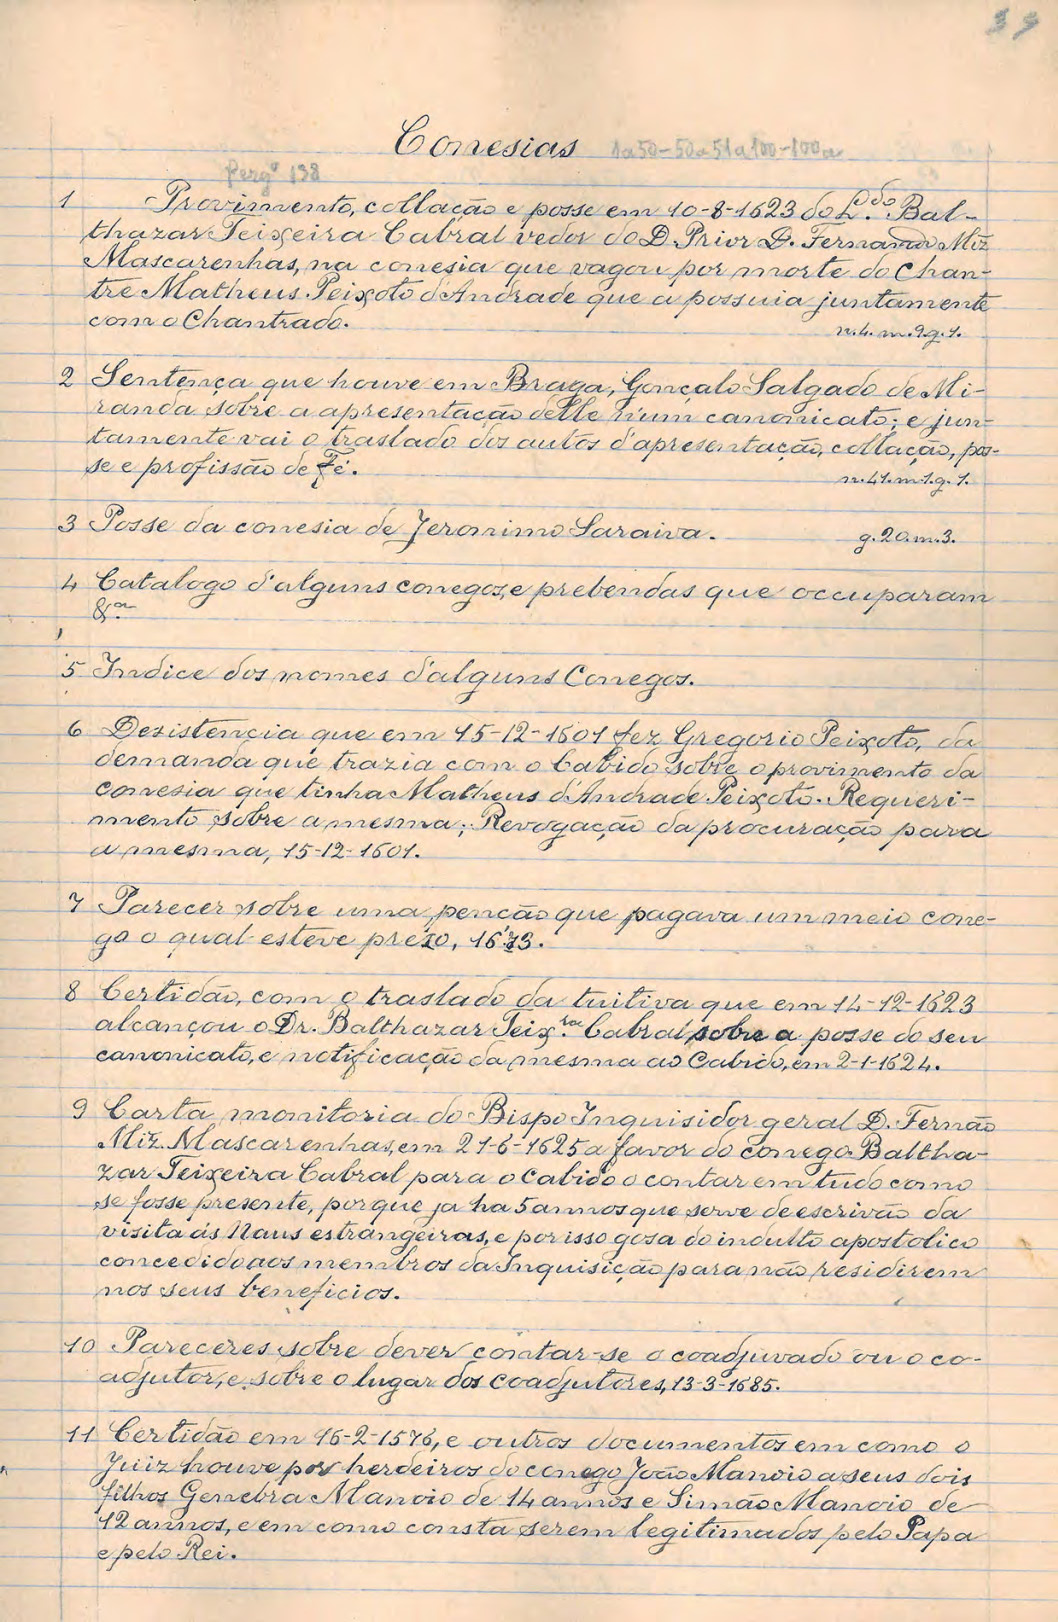 39
Conesias 1a50-50a51a100-100a
Pergº 138
1 Provimento, collação e posse em 10-8-1623 do L.do Bal-
thazar Teixeira Cabral vedor do D. Prior D. Fernando Miz
Mascarenhas, na conesia que vagou por morte do Chan-
tre Matheus Peixoto d'Andrade que a possuia juntamente
com o Chantrado. n.4. m.9.g.1.
2 Sentença que houve em Braga, Gonçalo Salgado de Mi-
randa sobre a apresentação delle n'um canonicato; e jun-
tamente vai o traslado dos autos d'apresentação, collação, pos-
se e profissão de Fé. n.41.m.1.g.1.
3 Posse da conesia de Jeronimo Saraiva. g.20.m.3.
4 Catalogo d'alguns conegos, e prebendas que occuparam
&.a
5 Indice dos nomes d'alguns Conegos.
6 Desistencia que em 15-12-1601 fez Gregorio Peixoto, da
demanda que trazia com o Cabido sobre o provimento da
conesia que tinha Matheus d'Andrade Peixoto. Requeri-
mento sobre a mesma; Revogação da procuração para
a mesma, 15-12-1601.
7 Parecer sobre uma penção que pagava um meio cone-
go o qual esteve prezo, 1673.
8 Certidão, com o traslado da tuitiva que em 14-12-1623
alcançou o Dr. Balthazar Teix.ra Cabral sobre a posse do seu
canonicato, e notificação da mesma ao Cabido, em 2-1-1624.
9 Carta monitoria do Bispo Inquisidor geral D. Fernão
Miz. Mascarenhas, em 21-6-1625 a favor do conego Baltha-
zar Teixeira Cabral para o Cabido o contar em tudo como
se fosse presente, porque ja ha 5 annos que serve de escrivão da
visita ás Naus estrangeiras, e por isso gosa do indulto apostolico
concedido aos membros da Inquisição para não residirem
nos seus beneficios.
10 Pareceres sobre dever contar-se o coadjuvado ou o co-
adjutor, e sobre o lugar dos coadjutores, 13-3-1685.
11 Certidão em 16-2-1576, e outros documentos em como o
Juiz houve por herdeiros do conego João Manoio a seus dois
filhos Genebra Manoio de 14 annos e Simão Manoio de
12 annos, e em como consta serem legitimados pelo Papa
e pelo Rei.